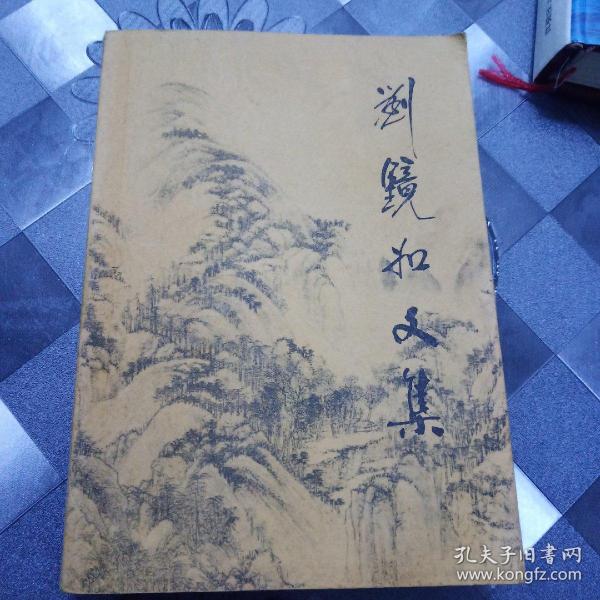 劉鏡如文集
孔夫子旧書网
www.kongfz.com